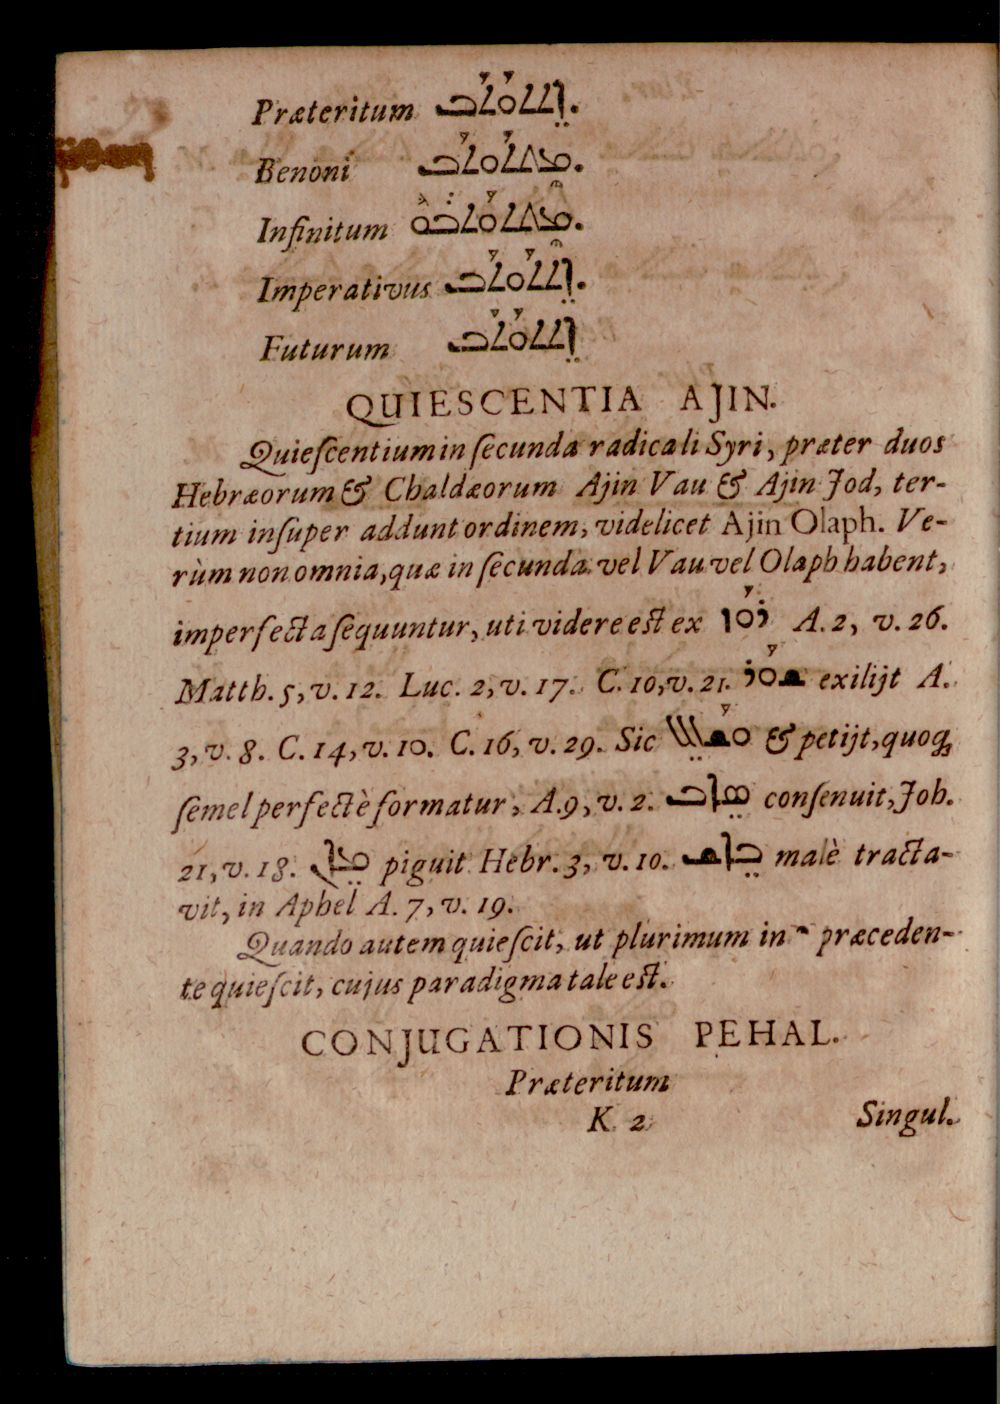 Præteritum ܐܬܬܘܬܒ.
Benoni ܡܬܬܘܬܒ.
Infinitum ܡܬܬܘܬܒܘ.
Imperativus ܐܬܬܘܬܒ.
Futurum ܢܬܬܘܬܒ
QUIESCENTIA AJIN.
Quieſcentium in ſecunda radicali Syri, præter duos
Hebræorum & Chaldæorum Ajin Vau & Ajin Jod, ter-
tium inſuper addunt ordinem, videlicet Ajin Olaph. Ve-
rùm non omnia, quæ in ſecunda vel Vau vel Olaph habent,
imperfecta ſequuntur, uti videre eſt ex ܪܘܙ A. 2, v. 26.
Matth. 5, v. 12. Luc. 2, v. 17. C. 10, v. 21. ܫܘܪ exilijt A.
3, v. 8. C. 14, v. 10. C. 16, v. 29. Sic ܘܫܐܠ & petijt, quoqꝫ
ſemel perfectè formatur, A. 9, v. 2. ܣܐܒ conſenuit, Joh.
21, v. 18. ܡܐܢ piguit Hebr. 3, v. 10. ܒܐܫ malè tracta-
vit, in Aphel A. 7, v. 19.
Quando autem quieſcit, ut plurimum in præceden-
te quieſcit, cujus paradigma tale eſt.
CONJUGATIONIS PEHAL.
Præteritum
K 2 Singul.